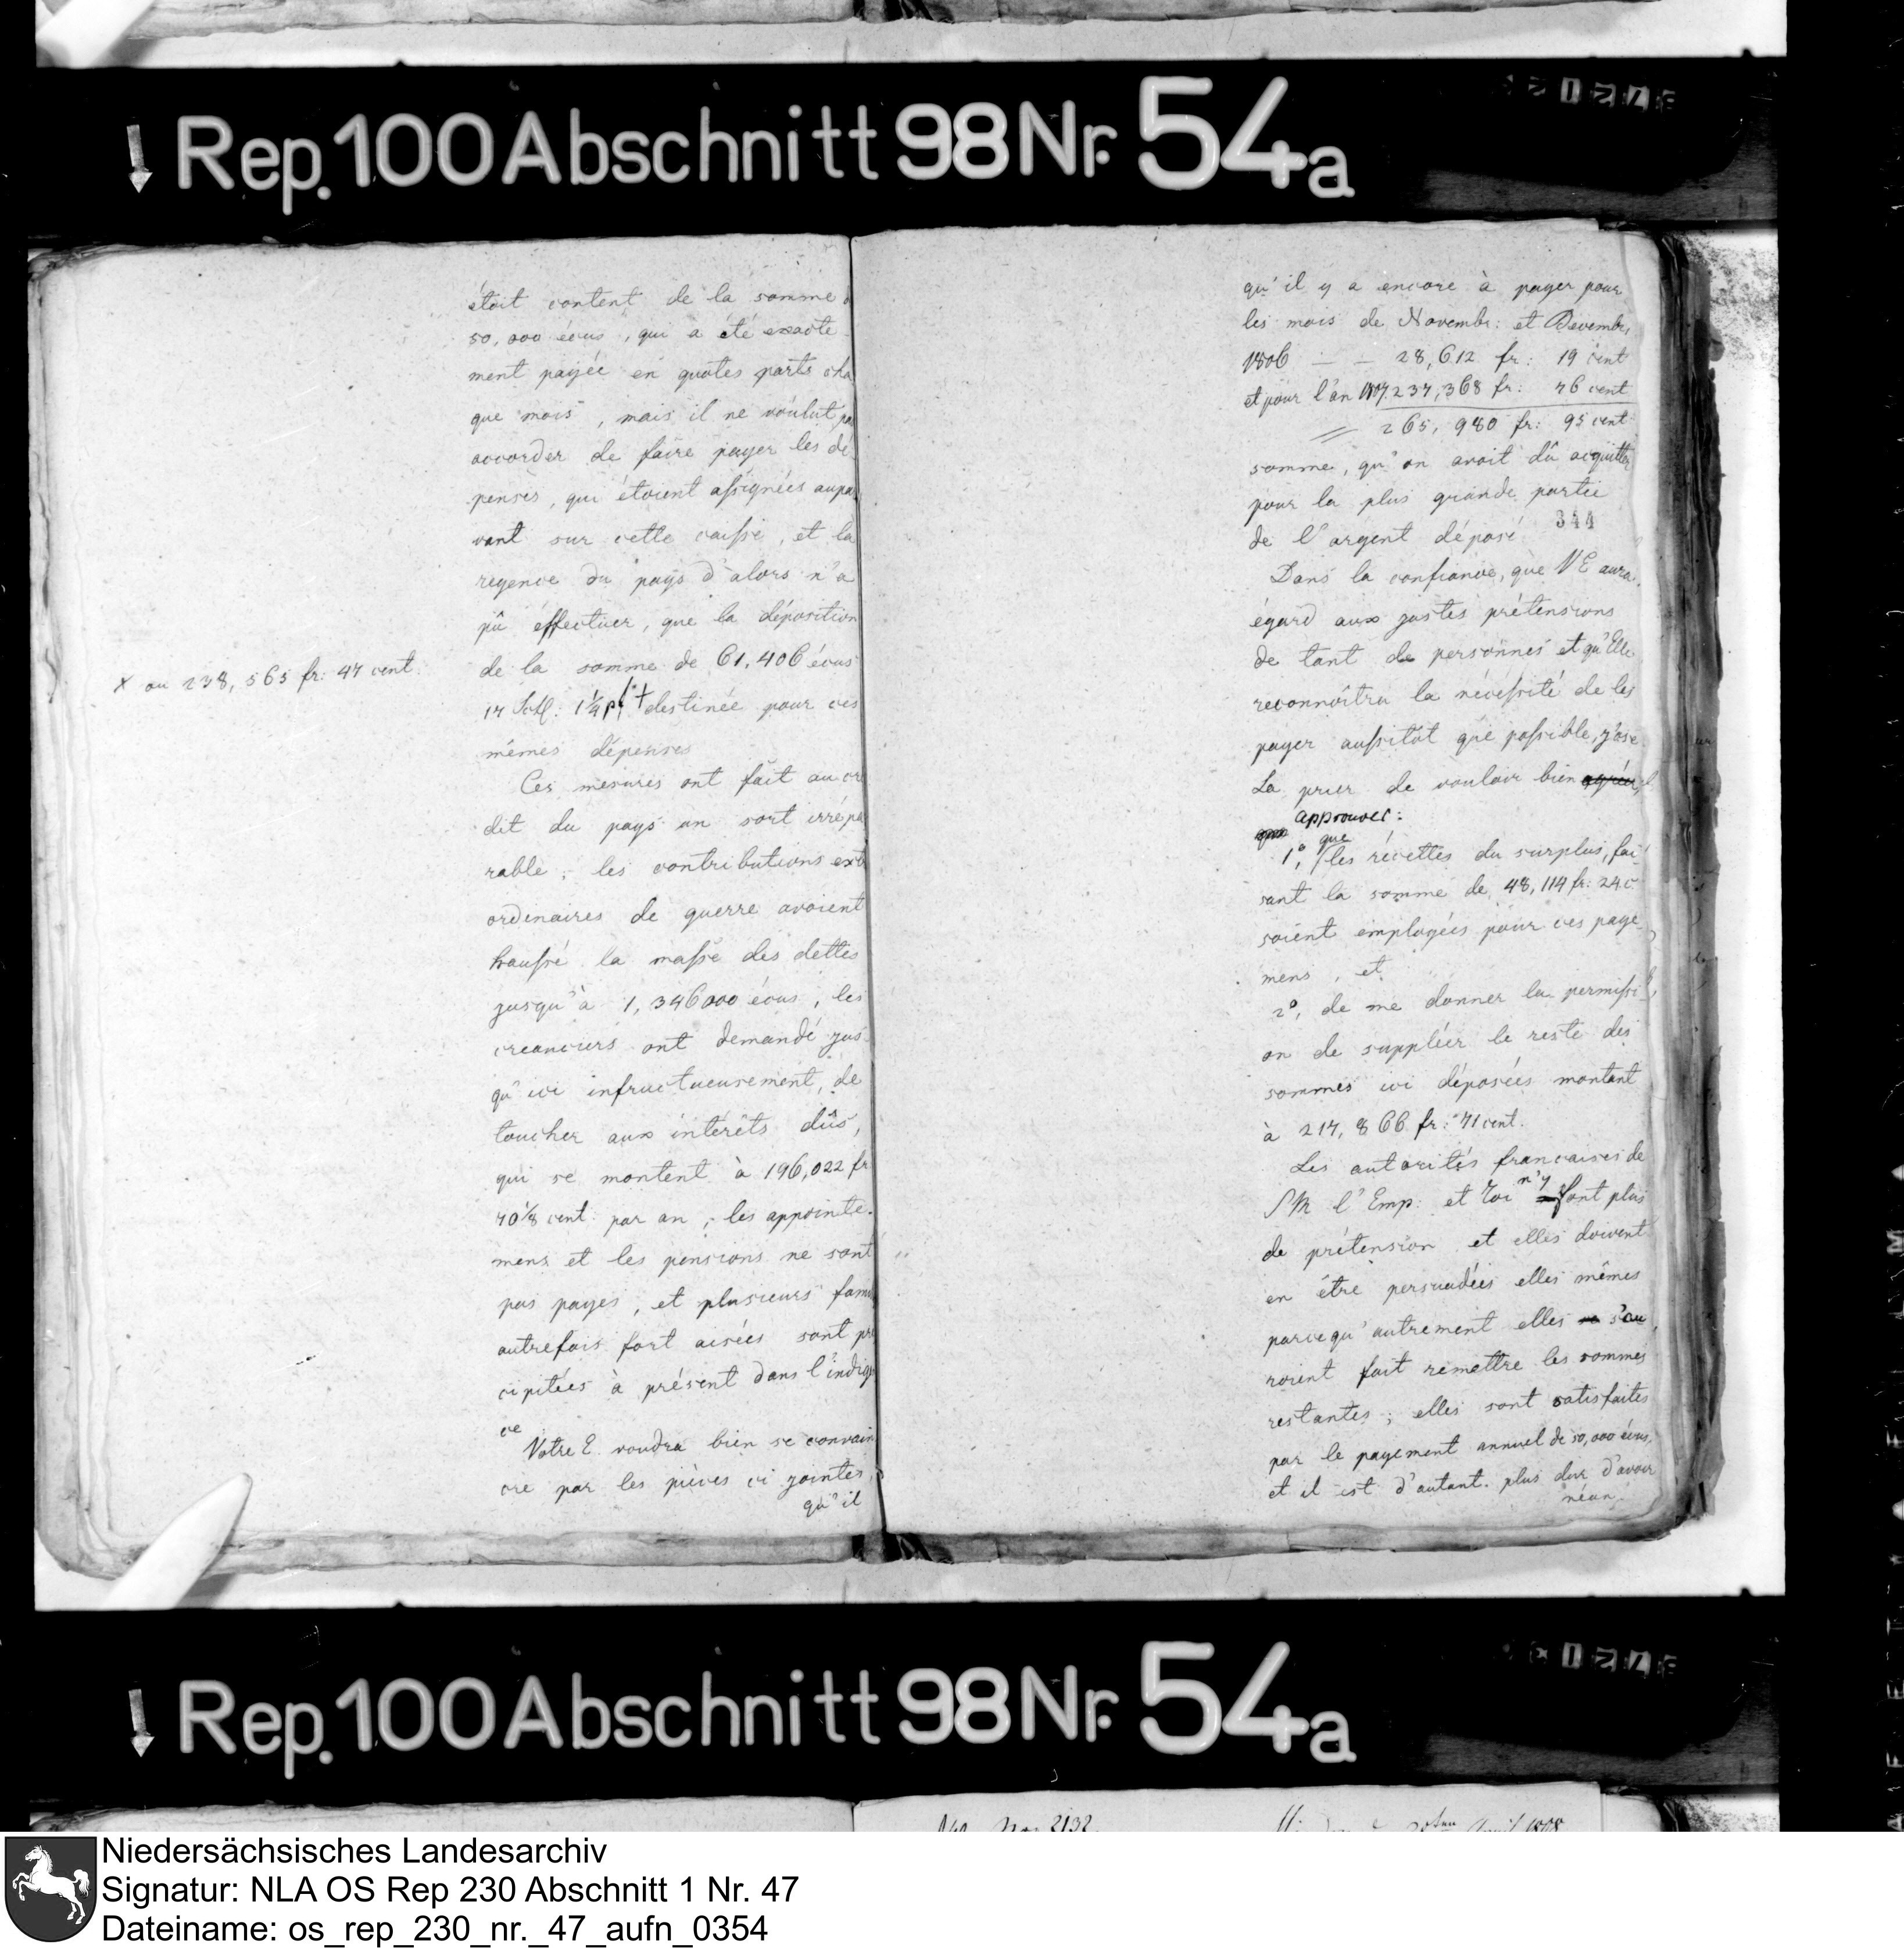 Rep. 100 Abschnitt 98 Nr. 54a
étoit content de la somme
50,000 écus, qui a été exacte
ment payée en quotes parts cha
que mois, mais il ne voulut pa
accorder de faire payer les dé
penses, qui étoient assignées aupa
vant sur cette caisse, et la
regence du pays d'alors n'a
pû effectuer, que la déposition
de la somme de 61,406 écus
17 1¼ destinée pour ces
mêmes dépenses
x ou 238,565 fr: 47 cent.
Ces mesures ont fait au cre
dit du pays un sort irrépa
rable; les contributions ext
ordinaires de guerre avoient
haussé la masse des dettes
jusqu'à 1,346000 écus, les
creanciers ont demandé jus
qu'ici infructueusement, de
toucher aux intérêts dûs,
qui se montent à 196,022 fr
70⅛ cent par an; les appointe-
mens et les pensions ne sont
pas payes, et plusieurs fami
autrefois fort aisées sont pré
cipitées à présent dans l'indig
ce
Votre E. voudra bien se convain
cre par les pièces ci jointes,
qu'il
qu'il y a encore à payer pour
les mois de Novembr: et Decembr,
1806 — — 28,612 fr: 19 cent
et pour l'an 1807. 237,368 fr: 76 cent
265,980 fr: 95 cent
somme, qu'on avoit dû acquitter
pour la plus grande partie
de l'argent déposé
344
Dans la confiance, que VE aura
égard aux justes prétensions
de tant de personnes et qu'Elle
reconnoîtra la nécessité de les
payer aussitôt que possible, j'ose
La prier de vouloir bien agréer,
approuver:
que
1°, les récettes du surplus, fai
sant la somme de 48,114 fr: 24 c
soient employées pour ces paye
mens, et
2°, de me donner la permissi
on de suppléer le reste des
sommes ici déposées montant
à 217,866 fr: 71 cent.
Les autorités francaises de
SM l'Emp: et roi n'y font plus
de prétension et elles doivent
en être persuadées elles mêmes
parcequ'autrement elles s'au
roient fait remettre les sommes
restantes; elles sont satisfaites
par le payement annuel de 50,000 écus,
et il est d'autant plus dur d'avoir
néan-
Rep. 100 Abschnitt 98 Nr. 54a
Niedersächsisches Landesarchiv
Signatur: NLA OS Rep 230 Abschnitt 1 Nr. 47
Dateiname: os_rep_230_nr._47_aufn_0354